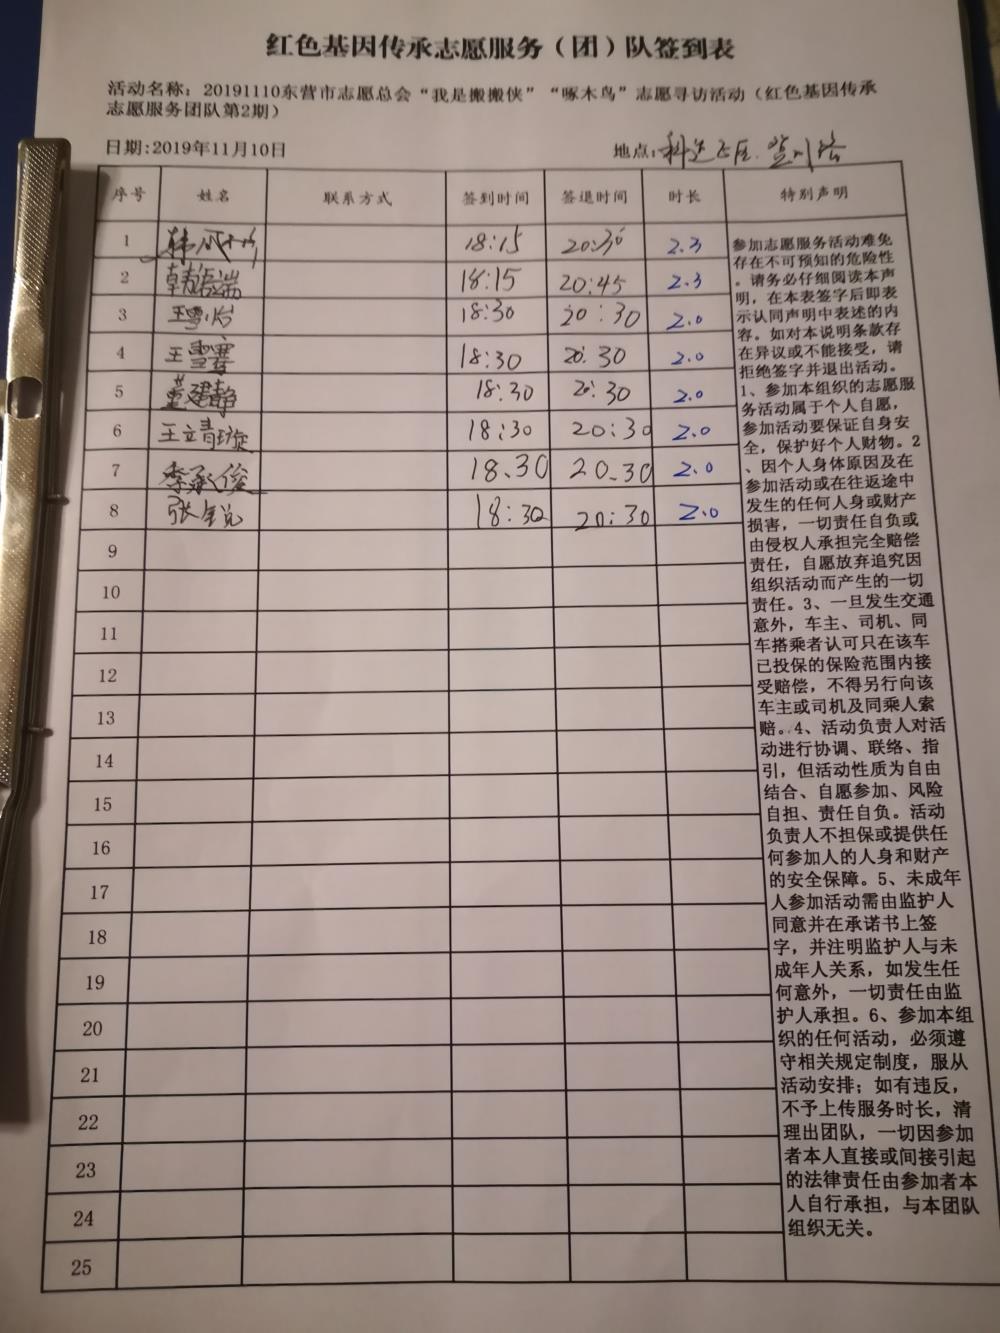 红色基因传承志愿服务（团）队签到表
活动名称：20191110东营市志愿总会“我是搬搬侠”“啄木鸟”志愿寻访活动（红色基因传承
志愿服务团队第2期）
日期:2019年11月10日 地点:科达
序号 姓名 联系方式 签到时间 签退时间 时长 特别声明
1 18:15 20:30 2.3
2 韩振瑞 18:15 20:45 2.3
3 王雪怡 18:30 20:30 2.0
4 王雪赛 18:30 20:30 2.0
5 董建静 18:30 20:30 2.0
6 王立青璇 18:30 20:30 2.0
7 李承俊 18.30 20.30 2.0
8 张钰悦 18:30 20:30 2.0
9
10
11
12
13
14
15
16
17
18
19
20
21
22
23
24
25
参加志愿服务活动难免
存在不可预知的危险性
。请务必仔细阅读本声
明，在本表签字后即表
示认同声明中表述的内
容。如对本说明条款存
在异议或不能接受，请
拒绝签字并退出活动。
1、参加本组织的志愿服
务活动属于个人自愿，
参加活动要保证自身安
全，保护好个人财物。2
、因个人身体原因及在
参加活动或在往返途中
发生的任何人身或财产
损害，一切责任自负或
由侵权人承担完全赔偿
责任，自愿放弃追究因
组织活动而产生的一切
责任。3、一旦发生交通
意外，车主、司机、同
车搭乘者认可只在该车
已投保的保险范围内接
受赔偿，不得另行向该
车主或司机及同乘人索
赔。4、活动负责人对活
动进行协调、联络、指
引，但活动性质为自由
结合、自愿参加、风险
自担、责任自负。活动
负责人不担保或提供任
何参加人的人身和财产
的安全保障。5、未成年
人参加活动需由监护人
同意并在承诺书上签
字，并注明监护人与未
成年人关系，如发生任
何意外，一切责任由监
护人承担。6、参加本组
织的任何活动，必须遵
守相关规定制度，服从
活动安排；如有违反，
不予上传服务时长，清
理出团队，一切因参加
者本人直接或间接引起
的法律责任由参加者本
人自行承担，与本团队
组织无关。